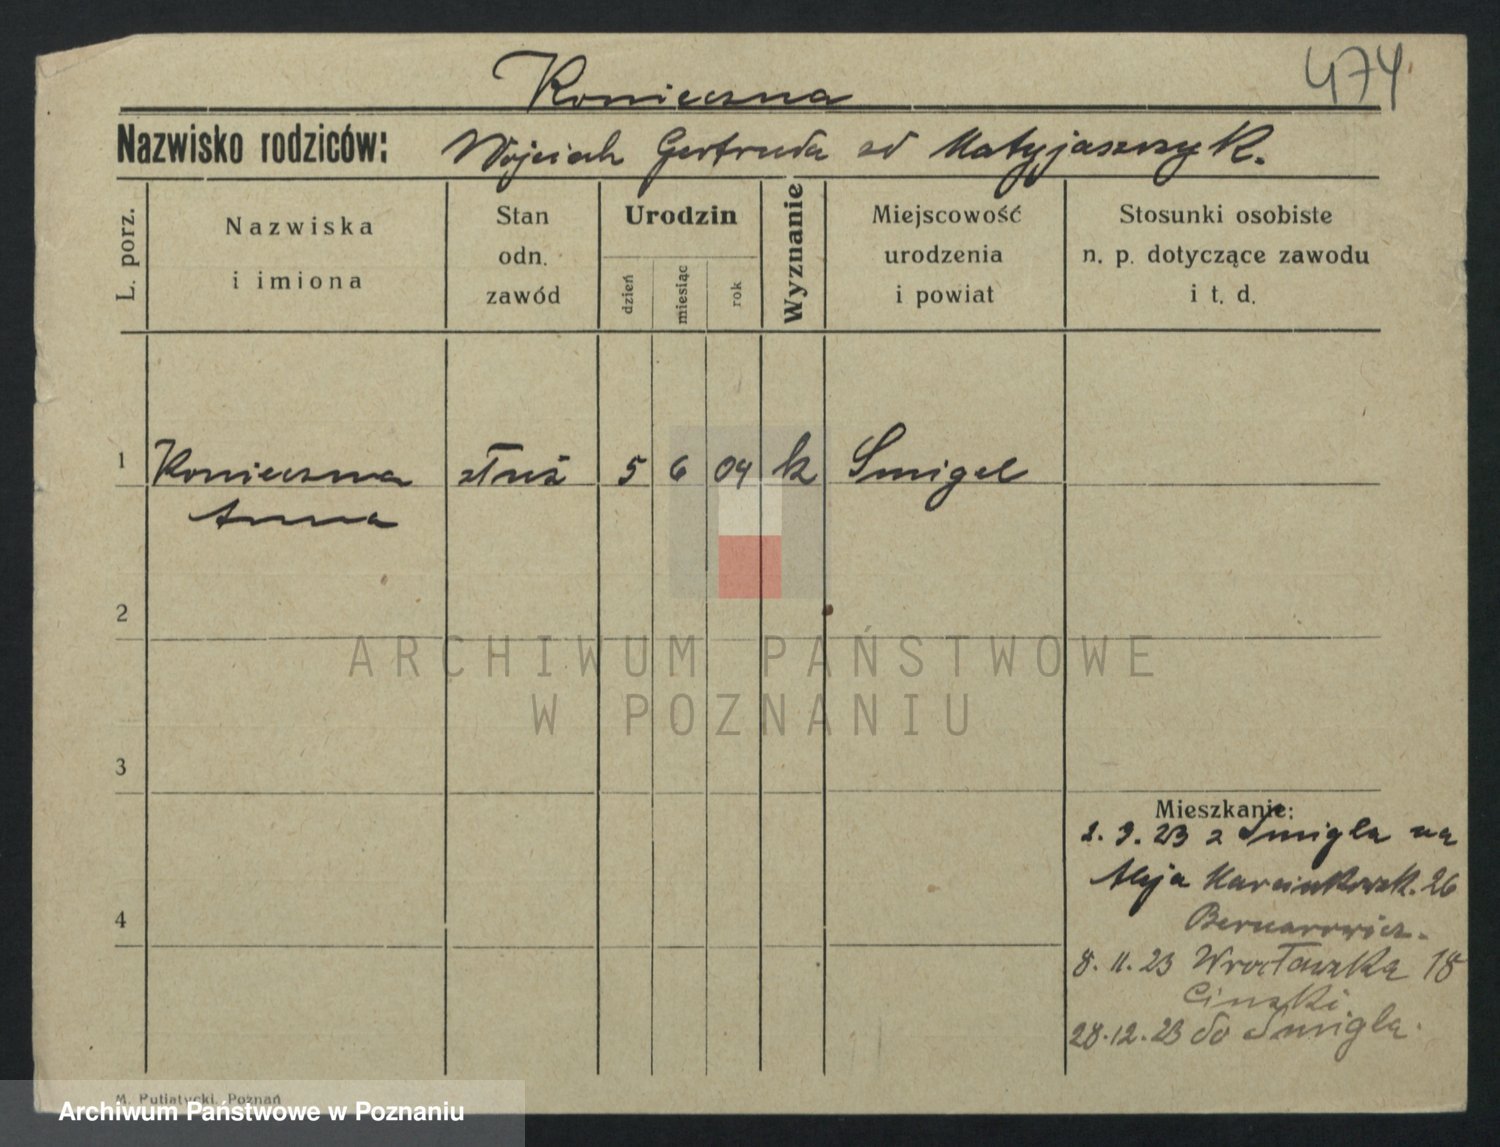 Konieczna
474
Nazwisko rodziców: Wojciech Gertruda od Matyjaszczyk.
L. porz.
Nazwiska
i imiona
Stan
odn.
zawód
Urodzin
dzień
miesiąc
rok
Wyznanie
Miejscowość
urodzenia
i powiat
Stosunki osobiste
n. p. dotyczące zawodu
i t. d.
1 Konieczna służ 5 6 04 k Smigel
Anna
2
ARCHIWUM PAŃSTWOWE
W POZNANIU
3
Mieszkanie:
2. 9. 23 z Smigla na
Aleja Marcinkowsk. 26
4
8. 11. 23 Wrocławska 18
28. 12. 23 do Smigla.
M. Putiatycki, Poznań
Archiwum Państwowe w Poznaniu